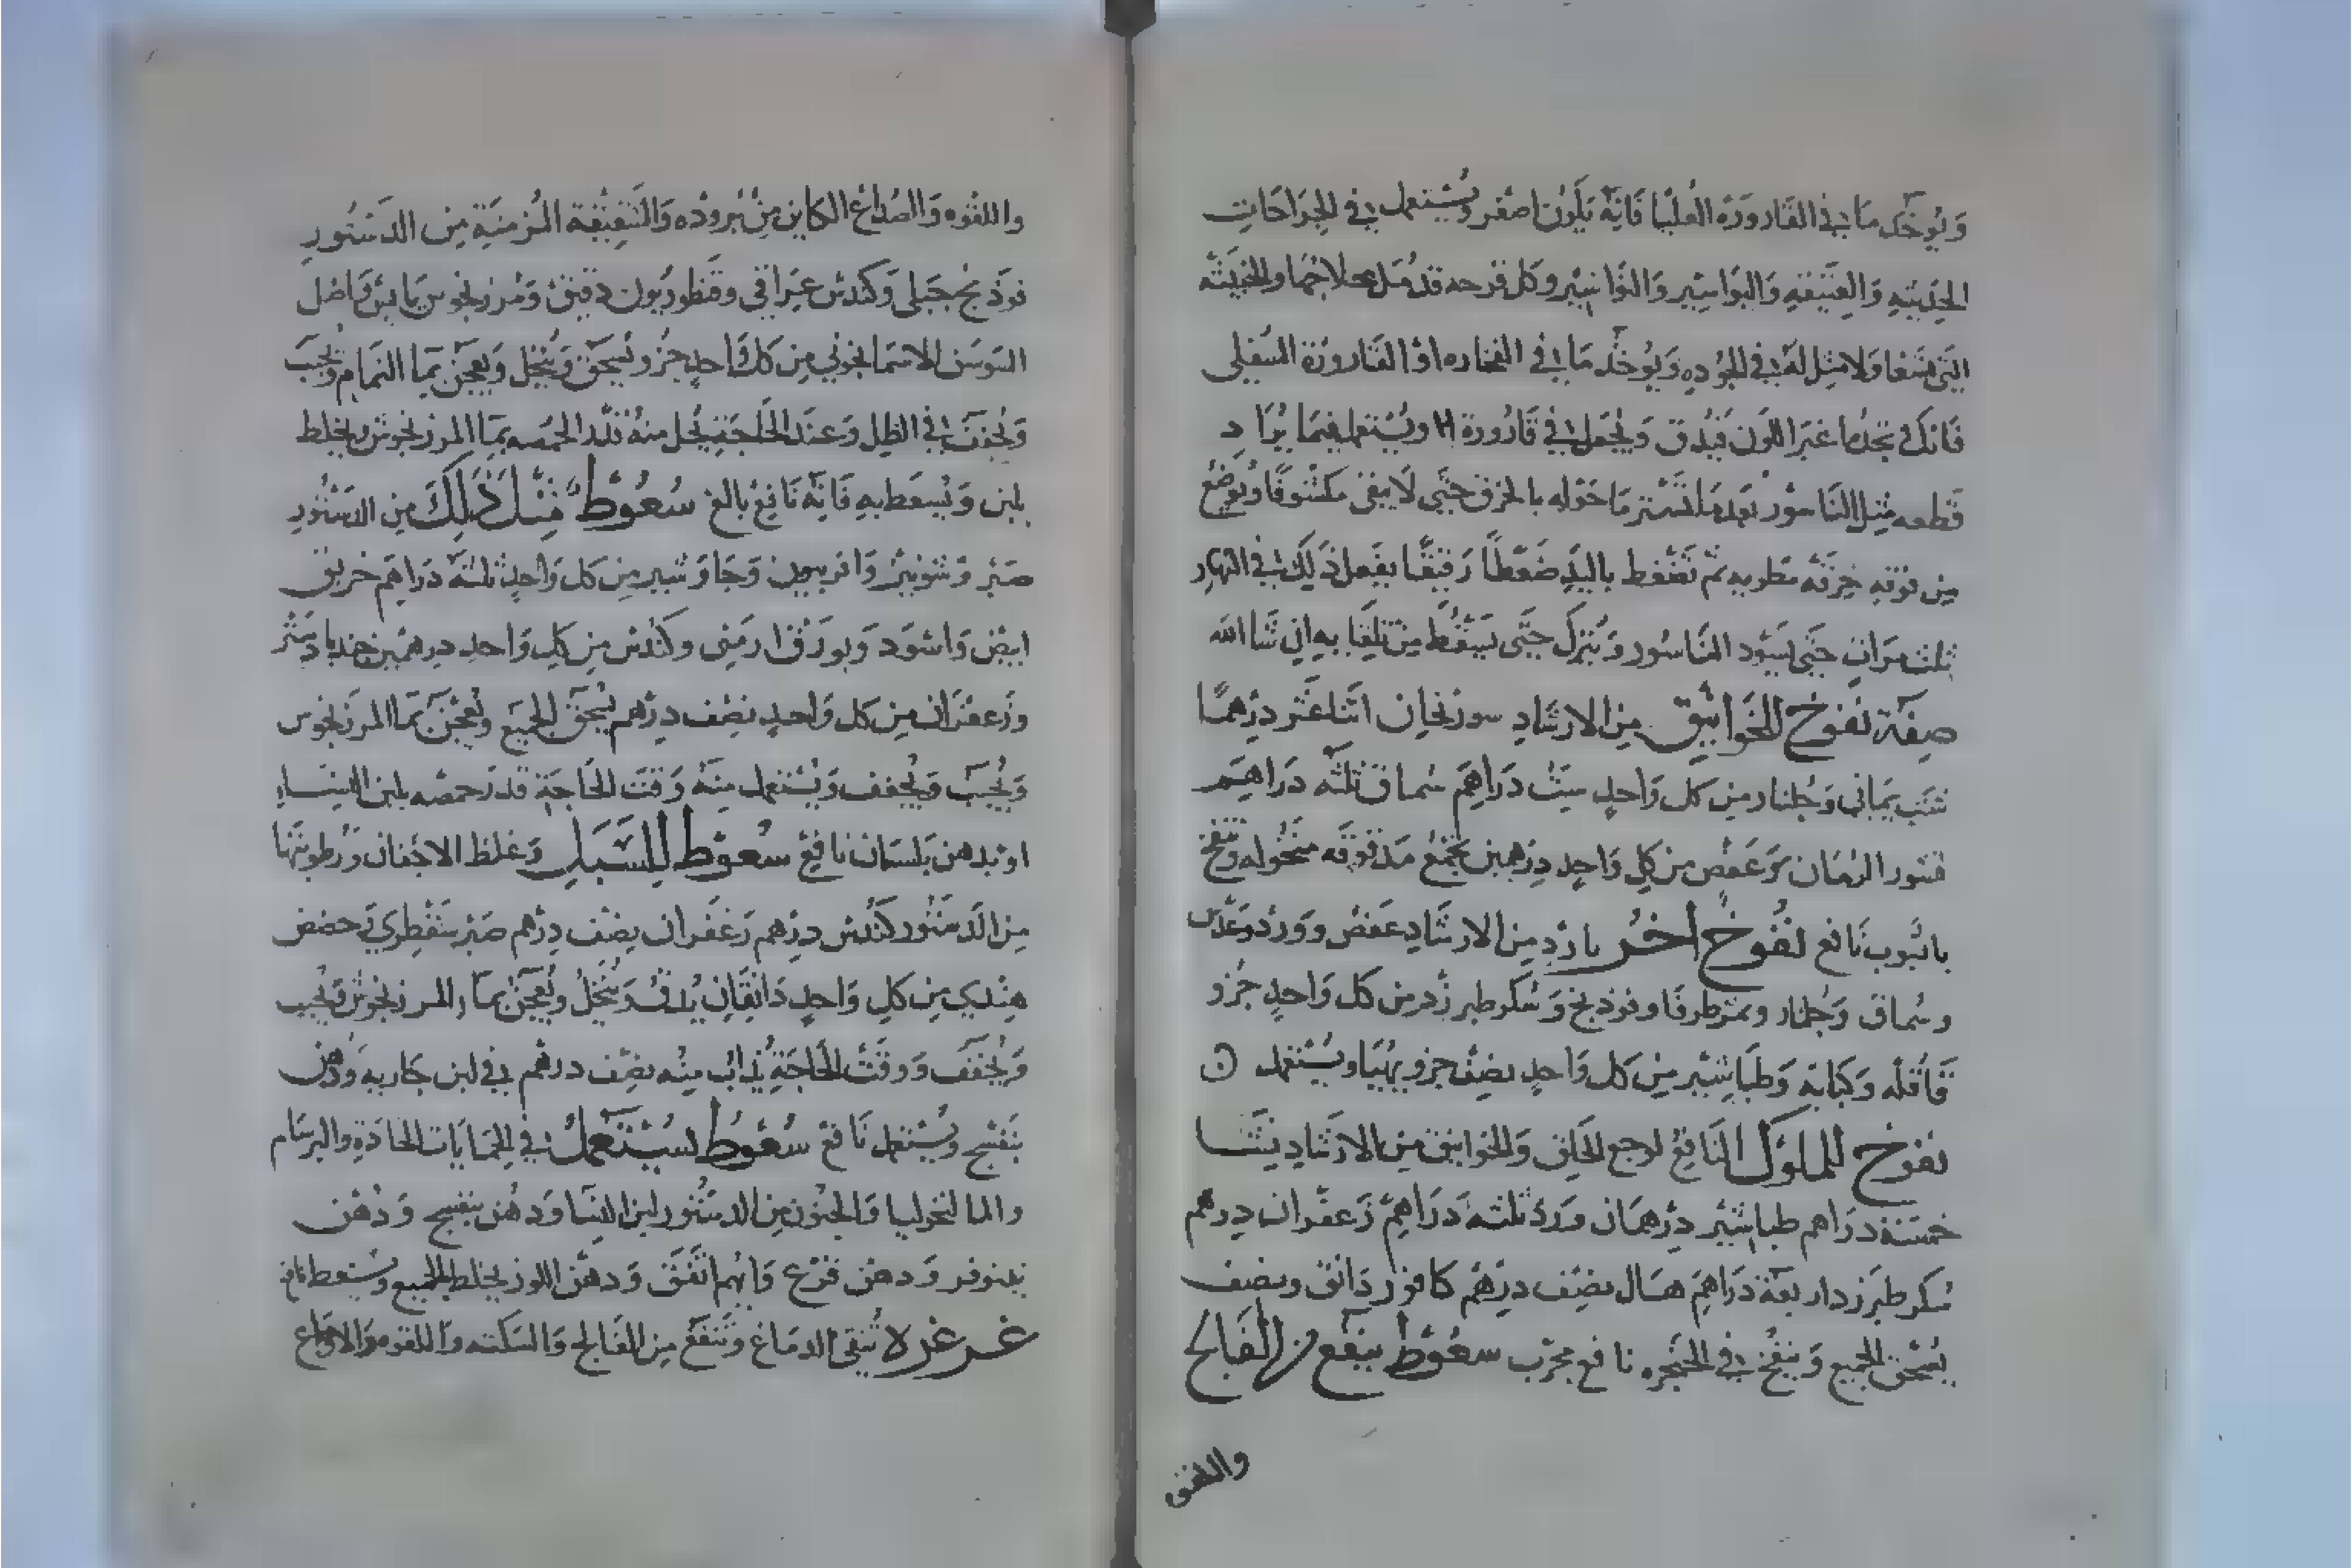 وَيُوخَذ مَا في القَارورَة العُليَا فَانَّه يَكُون اصفر وَيُستعمل في الجِرَاحَات
الحَدِيثَه وَالعَتِيقه وَالبَوَاسِير وَالنَّوَاسِير وكل قرحه قد مل علاجها والخبيثه
التي تسعا وَلا مثل لَه في الجُوده وَيُوخَذ مَا في الفخاره او القَارورَة السُفلى
فَانك تجدُها غبرا اللون فَيُدق وَيُجعل في قَارُورة وَيُستعمل فِيمَا يُرَا د
قطعه مِثل النَاسُور بَعد مَا تستر مَا حَوله بالخِرق حَتَّى لَا يبقى مكشُوفًا وَيُوضَع
مِن فوقه خِرقَه مطويه ثم تضغط باليَدِ ضَغطًا رَفِيقًا يفعل ذَلِكَ في النهار
ثلث مَرات حَتَّى يَسوَد النَاسُور وَيُترك حَتَّى يَسقُط مِن تلقَا به ان شَا الله
صِفَة نفُوخ للخَوانيق مِن الارشَادِ سورنجان اثنا عشر درهمًا
شب يمَاني وَجُلنار من كل وَاحِدٍ سِت دَرَاهم سُماق ثلثَه دَراهِم
قشور الرُمَان وَعَفص من كلِ وَاحِد درهمين تجمَع مَدقوقَه منخُوله وَتنفخ
بانبُوب نَافع نفُوخ اخرُ بارد مِن الارشَادِ عَفص وورد وَعدَس
وسُماق وَجُلنار وثمر طرفَا وفوذنج وَسُكر طبرزد من كل وَاحِدٍ جُزو
قَاقُله وَكبَابَه وَطَبَاشير مِن كل وَاحِدٍ نصف جزو يُهيَا ويُستعمل
نفوخ الملوك النَافِع لوجع الحَلق وَالخوانيق مِن الارشَادِ نَشَا
خمسَة دَرَاهم طباشير درهمَان وَرد ثلثَه دَرَاهِم زَعفرَان درهم
سُكر طبرَزد اربعَة دَرَاهِم هَال نصف درهم كافور دَانق ونصف
يُسحَق الجميع وَينفخ في الحنجره نافع مجرّب سعُوط ينفع من الفَالج
واللقو
واللقوه وَالصُدَاع الكاين مِن برُوده وَالشقيقَة المُزمنَة مِن الدستُور
فوذنج جَبلي وَكندس عِرَاقي وقنطوريون دقيق وَمرزنجوش يابس وَاصل
السَوسَن الاسمانجوني مِن كل وَاحِدٍ جزو يُسحَق وَيُنخل وَيُعجَن بمَا النمام وَيُحبَب
وَيُجفف في الظل وَعند الحَاجَةِ يُحل منهُ قدر الحمّصه بمَا المرزنجوش ويخلط
بلبن وَيُسعَط به فَانَّه نَافِع بالغ سُعُوط مِثل ذَلِكَ مِن الدستُور
صَبر وَشونيز وَافربيون وَجَاوَشير مِن كل وَاحِدٍ ثلثَه دَراهم خربق
ابيَض وَاسوَد وَبورَق ارمَني وكندس مِن كلِ وَاحدِ درهمين جندبادستر
وزَعفرَان من كل وَاحدٍ نصف درهم يُسحَق الجميع وَيُعجَن بمَا المرزنجوش
وَيُحبَب وَيُجفف وَيُستعمل مِنهُ وَقتَ الحَاجَةِ قدر حمصَه بلبن النسَاءِ
او بدهن بَلسَان نافع سعُوط للسَبَل وَغلظ الاجفان وَرطوبَتها
مِن الدَستُور كندس درهم زَعفَران نصف درهم صَبر سَقطري وَحضض
هِندي مِن كلِ وَاحِدٍ دَانقَان يُدق وَيُنخَلُ وَيُعجَن بمَا المرزنجوش وَيحبب
وَيُجَفف وَوقتَ الحَاجَةِ يُذاب مِنه نصِف درهم في لبن جَاريه وَدُهن
بَنفسَج ويُستعمل نَافع سُعُوط يُستعمَلُ في الحمَايَات الحَادَةِ والبرسَام
والمالنخوليا وَالجنُون من الدستُور لبن النسَا وَدُهن بَنفسَج وَدُهن
نيلوفر وَدهن قرع وَايهُم اتفق وَدهن اللوز يخلط الجميع ويستعط نافع
غرغرة تُنقي الدمَاغ وَتنفَع مِن الفَالج وَالسَكته وَاللقوه وَالاوجاع